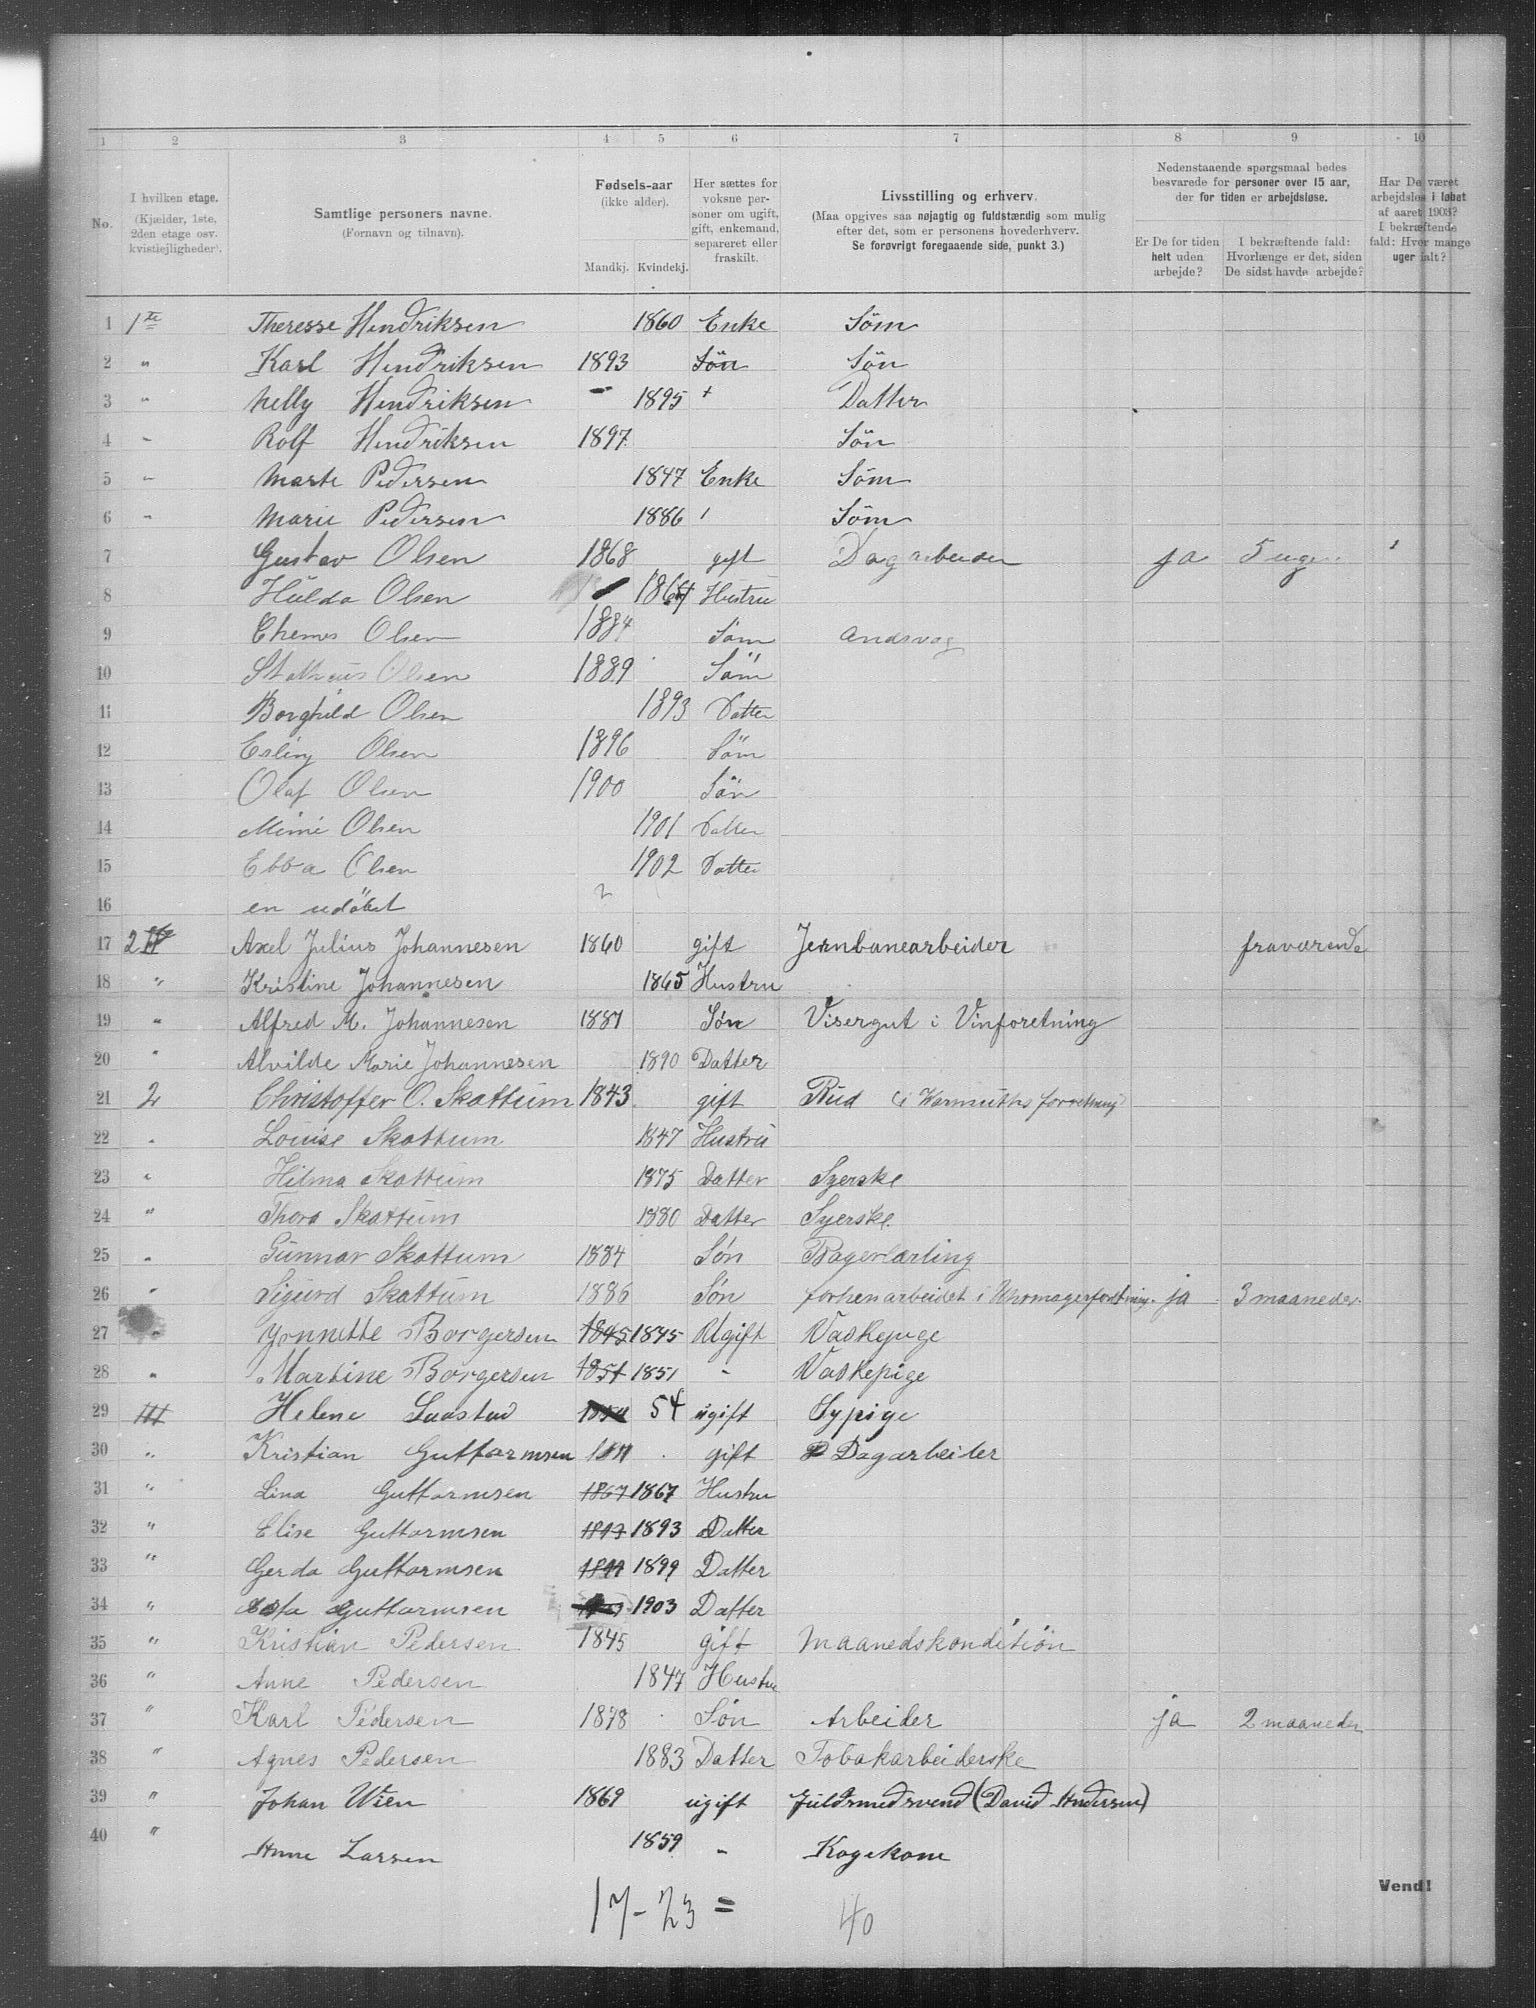 1 2 3 4 5 6 7 8 9 10
No.
I hvilken etage.
(Kjælder, 1ste,
2den etage osv.
kvistlejligheder).
Samtlige personers navne.
(Fornavn og tilnavn).
Fødsels-aar
(ikke alder).
Mandkj. Kvindekj.
Her sættes for
voksne per-
soner om ugift,
gift, enkemand,
separeret eller
fraskilt.
Livsstilling og erhverv.
(Maa opgives saa nøjagtig og fuldstændig som mulig
efter det, som er personens hovederhverv.
Se forøvrigt foregaaende side, punkt 3.)
Nedenstaaende spørgsmaal bedes
besvarede for personer over 15 aar,
der for tiden er arbejdsløse.
Er De for tiden
helt uden
arbejde?
I bekræftende fald:
Hvorlænge er det, siden
De sidst havde arbejde?
Har De været
arbejdsløs i løbet
af aaret 1903?
I bekræftende
fald: Hvor mange
uger ialt?
1 1te Theresse Hendriksen 1860 Enke Söm
2 " Karl Hendriksen 1893 Sön Sön
3 " Nelly Hendriksen - 1895 + Datter
4 " Rolf Hendriksen 1897 Sön
5 " Marte Pedersen 1847 Enke Söm
6 " Marie Pedersen 1886 / Söm
7 Gustav Olsen 1868 gift Dagarbeider ja 5 uger
8 Hulda Olsen 1864 Hustru
9 Olsen 1884 Söm Andsvag
10 Olsen 1889 Söm
11 Borghild Olsen 1893 Datter
12 Esling Olsen 1896 Söm
13 Olaf Olsen 1900 Sön
14 Mimi Olsen 1901 Datter
15 Ebba Olsen 1902 Datter
16 en udöbt 2
17 2 Axel Julius Johannesen 1860 gift Jernbanearbeider fraværende
18 " Kristine Johannesen 1865 Hustru
19 " Alfred M. Johannesen 1887 Søn Visergut i Vinforetning
20 " Alvilde Marie Johannesen 1890 Datter
21 2 Christoffer O. Skattum 1843 gift Bud (i Warmuths forretning)
22 " Louise Skattum 1847 Hustru
23 " Hilma Skattum 1875 Datter Syerske
24 " Thora Skattum 1880 Datter Syerske.
25 " Gunnar Skattum 1884 Søn Bagerlærling
26 " Sigurd Skattum 1886 Søn forhen arbeidet i Uhrmagerforetning. ja 3 maaneder.
27 " Jonnette Borgersen 1845 1845 Ugift Vaskepige
28 " Martine Borgersen 1851 1851 " Vaskepige
29 III Helene Saastad 54 ugift Sypige
30 " Kristian Guttormsen gift Dagarbeider
31 " Lina Guttormsen 1867 1867 Hustru
32 " Elise Guttormsen 1893 1893 Datter
33 " Gerda Guttormsen 1899 1899 Datter
34 " Guttormsen 1903 Datter
35 " Kristian Pedersen 1845 gift Maanedskondition
36 " Anne Pedersen 1847 Hustru
37 " Karl Pedersen 1878 Søn Arbeider ja 2 maaneder
38 " Agnes Pedersen 1883 Datter Tobakarbeiderske
39 " Johan Wien 1869 ugift Guldsmedsvend (David Andersen)
40 " Anne Larsen 1859 " Kogekone
Vend!
17-23 = 40